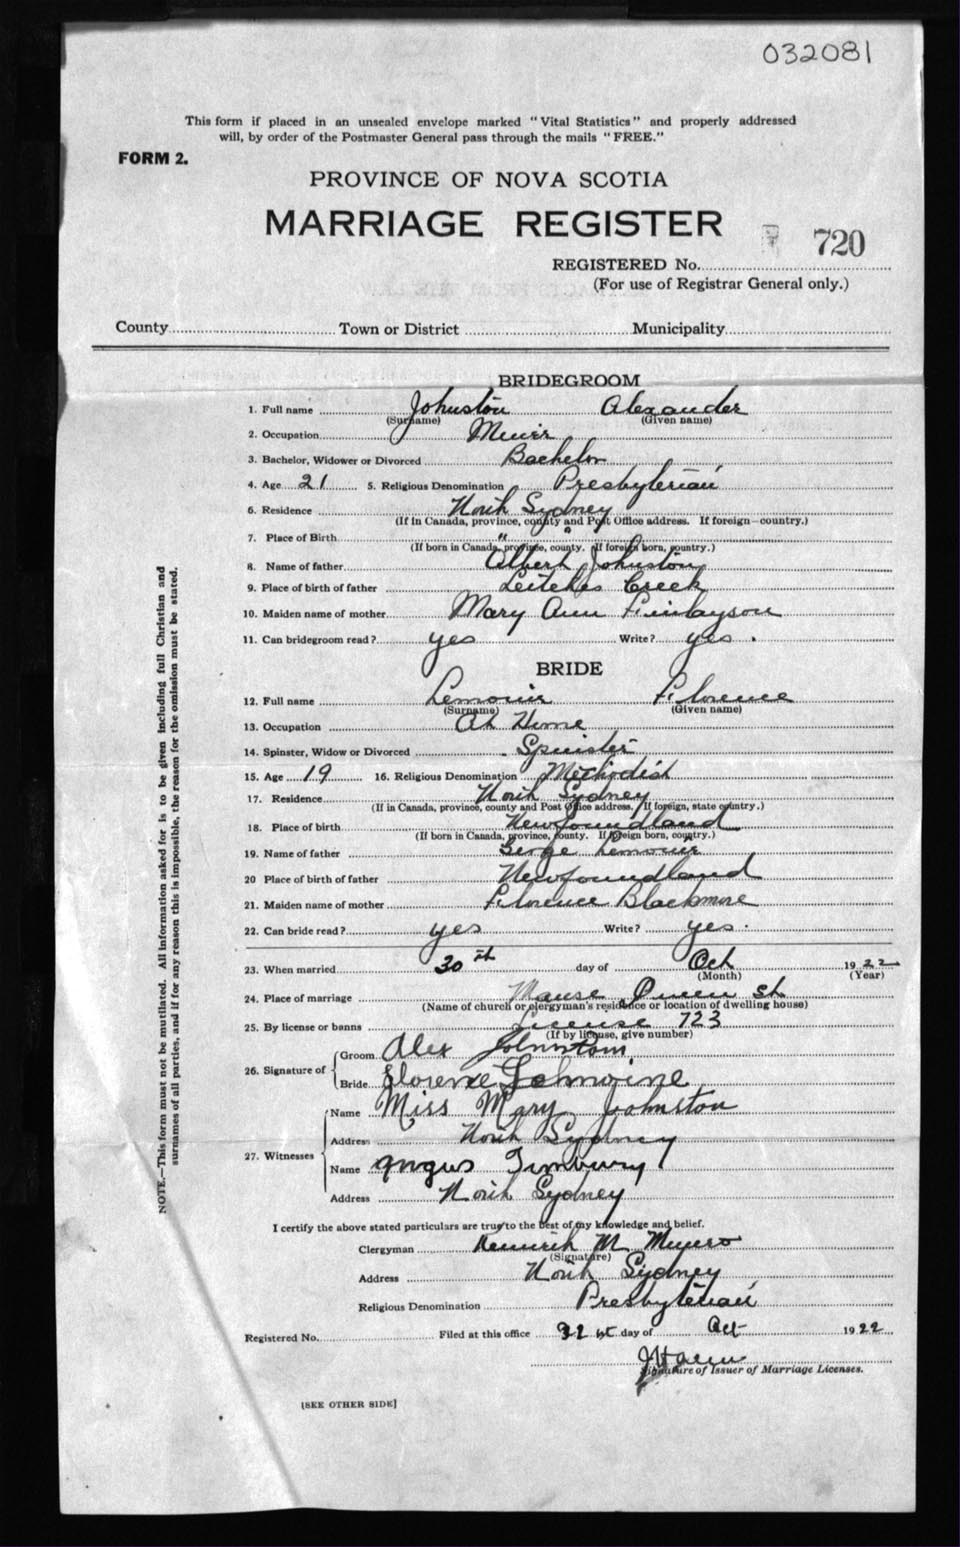 032081
This form if placed in an unsealed envelope marked "Vital Statistics" and properly addressed
will, by order of the Postmaster General pass through the mails "FREE."
FORM 2.
PROVINCE OF NOVA SCOTIA
MARRIAGE REGISTER
720
REGISTERED No.
(For use of Registrar General only.)
County Town or District Municipality
BRIDEGROOM
1. Full name Johnston Alexander
(Surname) (Given name)
2. Occupation Miner
3. Bachelor, Widower or Divorced Bachelor
4. Age 21 5. Religious Denomination Presbyterian
6. Residence North Sydney
(If in Canada, province, county and Post Office address. If foreign—country.)
7. Place of Birth " "
(If born in Canada, province, county. If foreign born, country.)
8. Name of father Albert Johnston
9. Place of birth of father Leitches Creek
10. Maiden name of mother Mary Ann Finlayson
11. Can bridegroom read? yes Write? yes.
BRIDE
12. Full name Lemoine Florence
(Surname) (Given name)
13. Occupation At Home
14. Spinster, Widow or Divorced Spinster
15. Age 19 16. Religious Denomination Methodist
17. Residence North Sydney
(If in Canada, province, county and Post Office address. If foreign, state country.)
18. Place of birth Newfoundland
(If born in Canada, province, county. If foreign born, country.)
19. Name of father Lemoine
20 Place of birth of father Newfoundland
21. Maiden name of mother Florence Blackmore
22. Can bride read? yes Write? yes.
23. When married 30th day of Oct 1922
(Month) (Year)
24. Place of marriage Manse Queen St
(Name of church or clergyman's residence or location of dwelling house)
25. By license or banns License 723
(If by license, give number)
26. Signature of
Groom Alex Johnstom
Bride Florence Lehmoine
27. Witnesses
Name Miss Mary Johnston
Address North Sydney
Name Angus Timbury
Address North Sydney
I certify the above stated particulars are true to the best of my knowledge and belief.
Clergyman M Munro
(Signature)
Address North Sydney
Religious Denomination Presbyterian
Registered No. Filed at this office 31st day of Oct 1922
Signature of Issuer of Marriage Licenses.
[SEE OTHER SIDE]
NOTE.—This form must not be mutilated. All information asked for is to be given including full Christian and
surnames of all parties, and if for any reason this is impossible, the reason for the omission must be stated.